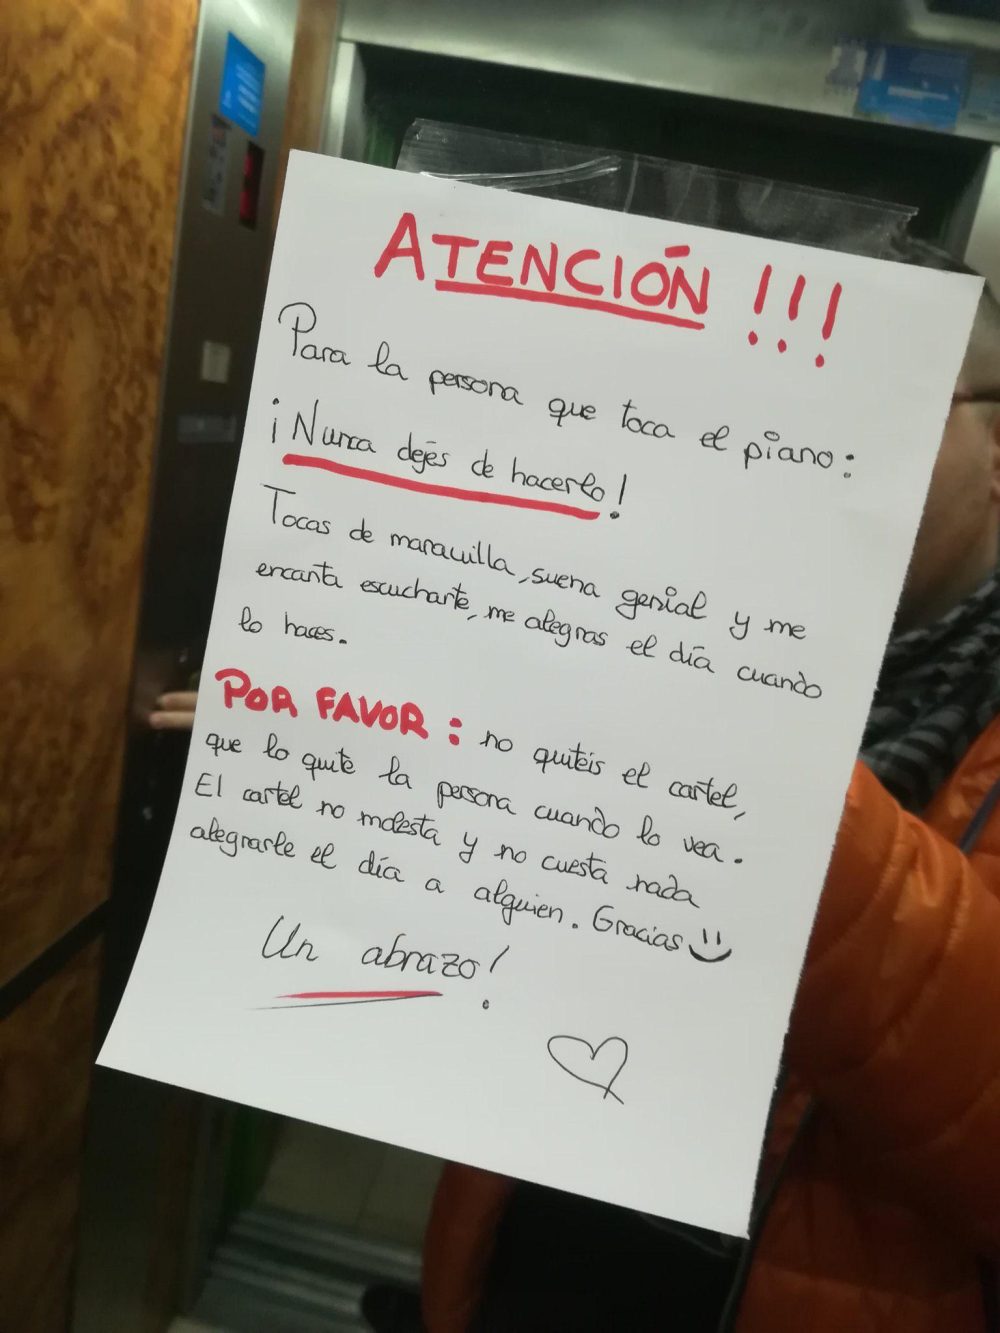 ATENCIÓN !!!
Para la persona que toca el piano:
¡Nunca dejés de hacerlo!
Tocas de maravilla, suena genial y me
encanta escucharte, me alegras el día cuando
lo haces.
POR FAVOR: no quitéis el cartel,
que lo quite la persona cuando lo vea.
El cartel no molesta y no cuesta nada
alegrarle el día a alguien. Gracias
Un abrazo!